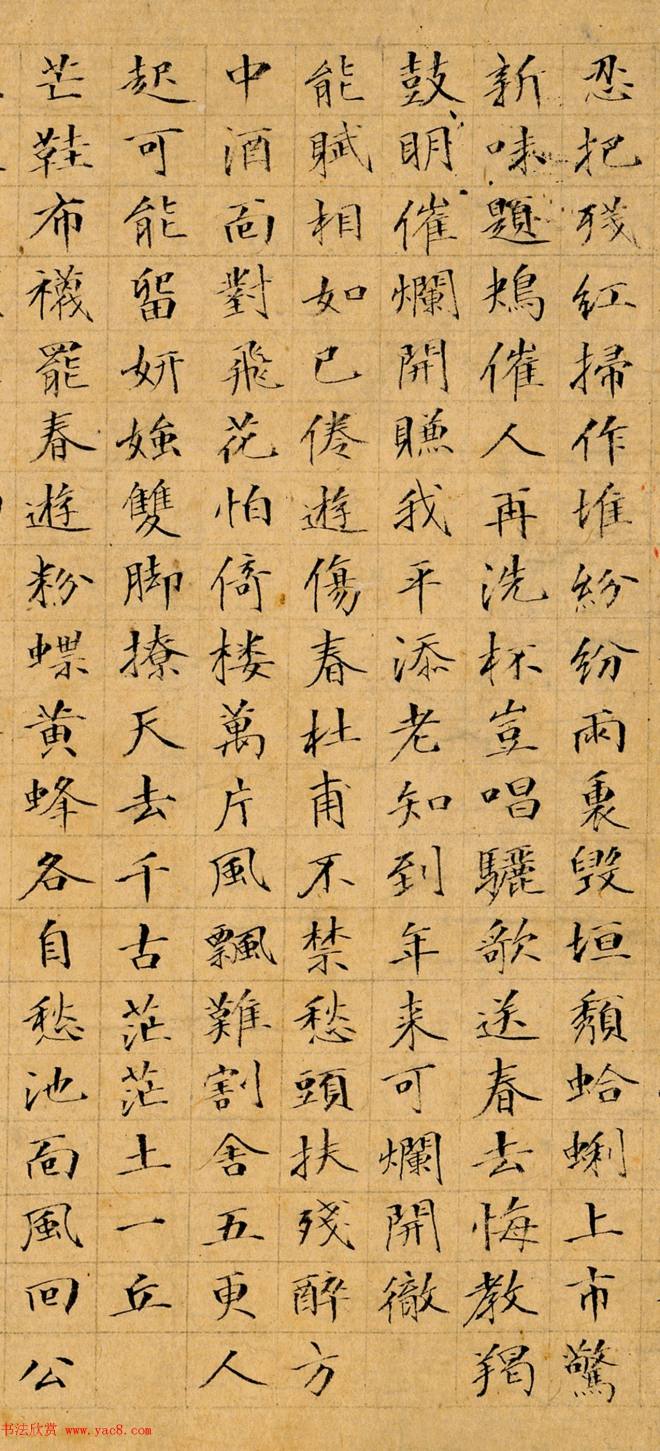 忍把殘红掃作堆紛紛雨裏毁垣頽蛤蜊上市驚
新味題鴂催人再洗杯豈唱驪歌送春去悔教羯
鼓明催爛開賺我平添老知到年来可爛開徹
能賦相如已倦遊傷春杜甫不禁愁頭扶残醉方
中酒面對飛花怕倚楼萬片風飄難割舍五更人
起可能留妍媸雙脚撩天去千古茫茫土一丘
芒鞋布襪罷春遊粉蝶黄蜂各自愁池面風回公
书法欣赏 www.yac8.com